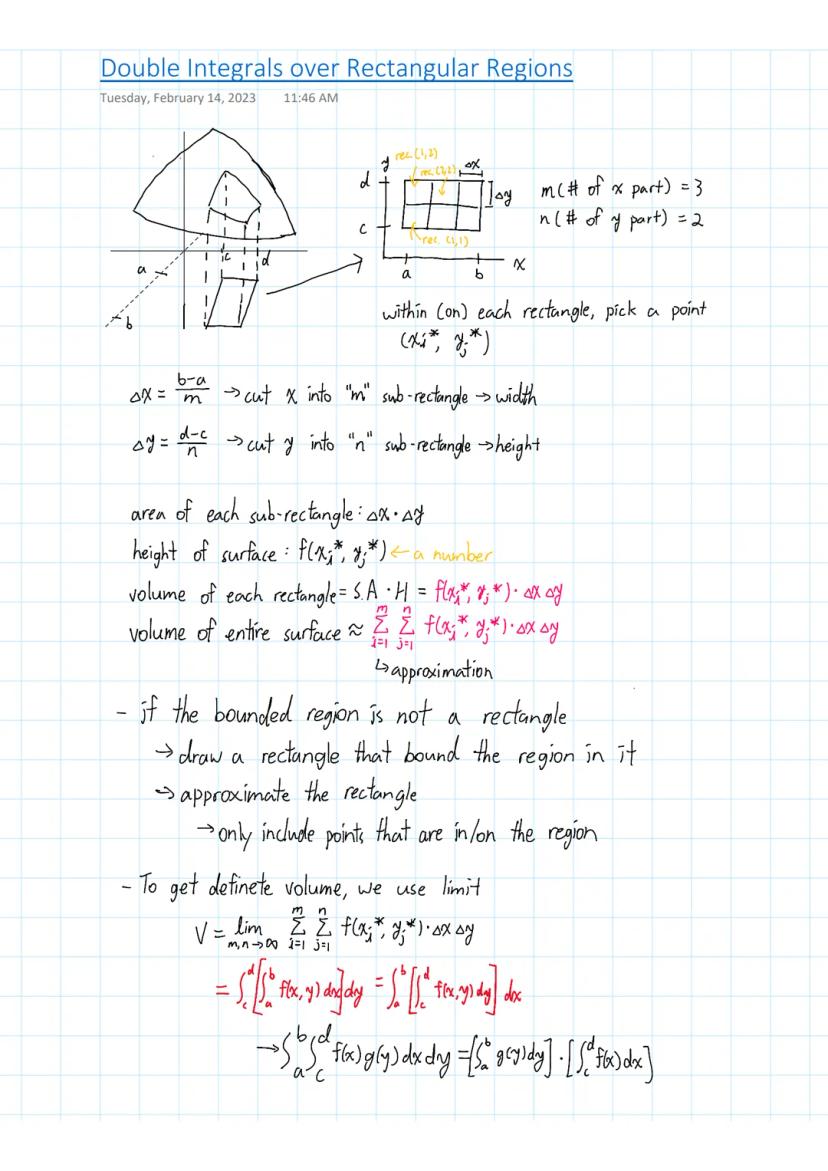 Double Integrals over Rectangular Regions
Tuesday, February 14, 2023 11:46 AM
a
b
c
d
y
rec. (1,2)
rec. (2,2)
Δx
d
Δy
c
rec. (1,1)
a
b
x
m (# of x part) = 3
n (# of y part) = 2
within (on) each rectangle, pick a point
(xᵢ*, yⱼ*)
Δx = (b-a)/m → cut x into "m" sub-rectangle → width
Δy = (d-c)/n → cut y into "n" sub-rectangle → height
area of each sub-rectangle : Δx · Δy
height of surface : f(xᵢ*, yⱼ*) ← a number
volume of each rectangle = S.A · H = f(xᵢ*, yⱼ*) · Δx Δy
volume of entire surface ≈ Σ_{i=1}^{m} Σ_{j=1}^{n} f(xᵢ*, yⱼ*) · Δx Δy
↳ approximation
- if the bounded region is not a rectangle
→ draw a rectangle that bound the region in it
→ approximate the rectangle
→ only include points that are in/on the region
- To get definete volume, we use limit
V = lim_{m,n→∞} Σ_{i=1}^{m} Σ_{j=1}^{n} f(xᵢ*, yⱼ*) · Δx Δy
= ∫_c^d [∫_a^b f(x,y) dx] dy = ∫_a^b [∫_c^d f(x,y) dy] dx
→ ∫_a^b ∫_c^d f(x) g(y) dx dy = [∫_a^b g(y) dy] · [∫_c^d f(x) dx]